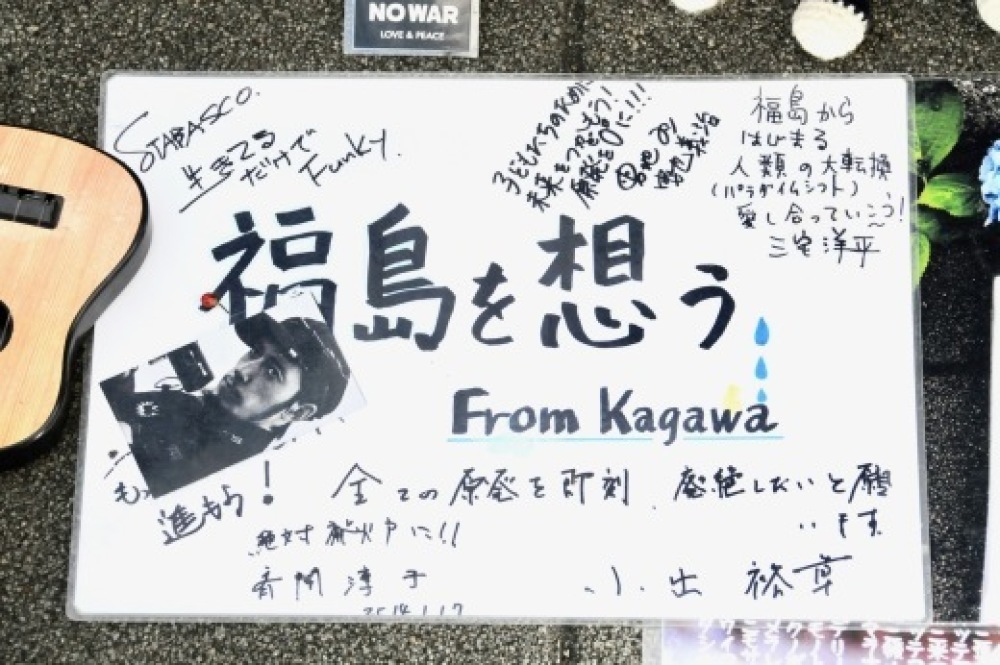 NO WAR
LOVE & PEACE
STABASCO.
生きてる
だけで
Funky.
子どもたちのために
未来をつなごう!
原発を0に!!!
福島から
はじまる
人類の大転換
(パラダイムシフト)
愛し合っていこう!
三宅洋平
福島を想う
From Kagawa
もっ
進もう!
全ての原発を即刻、廃絶したいと願
います
絶対廃炉に!!
小出 裕章